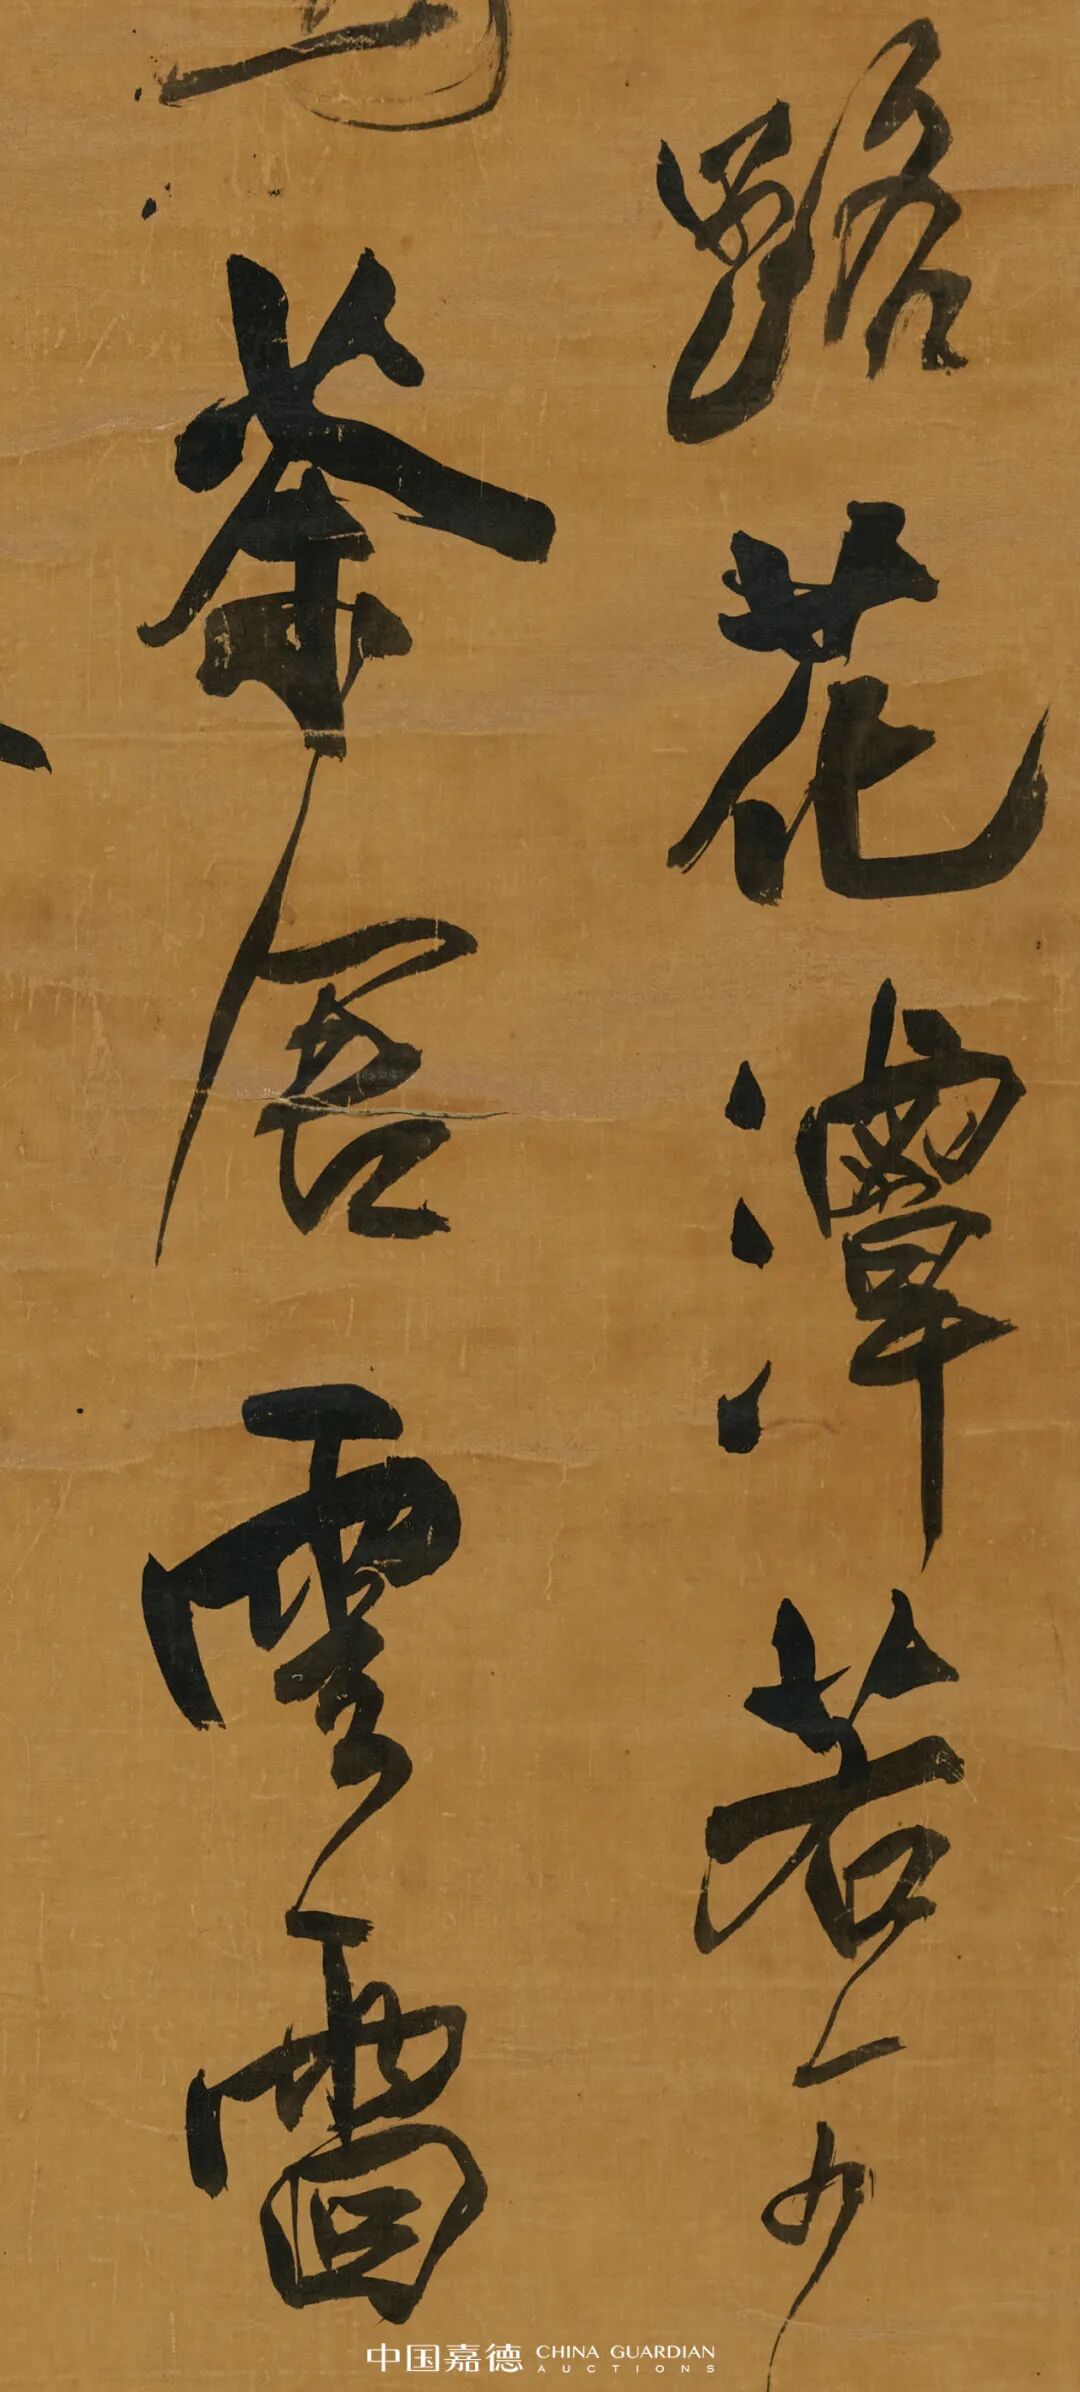 路花潭若
茶雲雷
中国嘉德 CHINA GUARDIAN
AUCTIONS